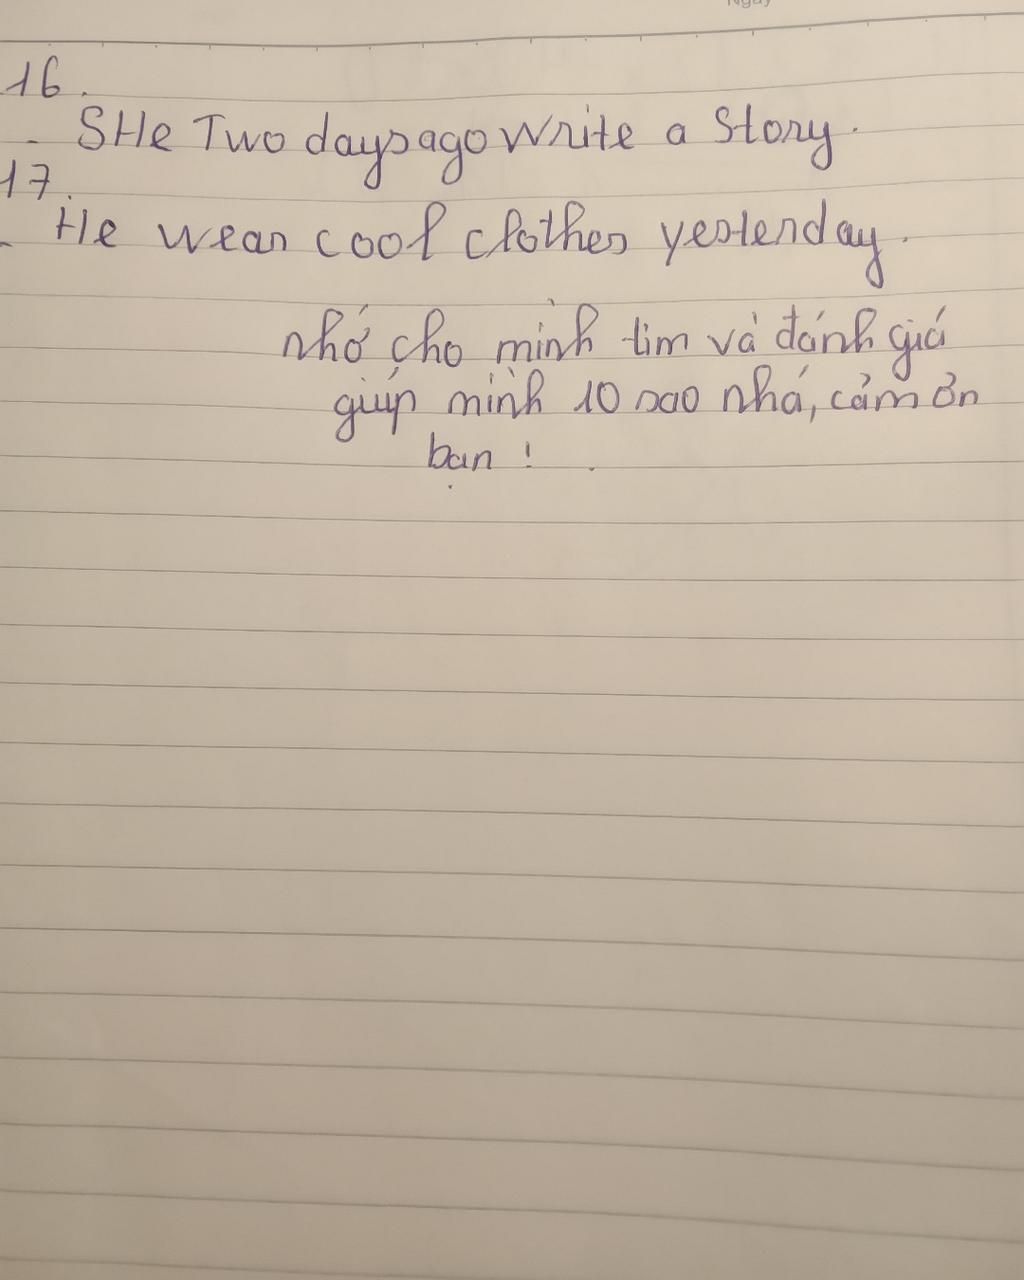 Ngày
16.
- SHe Two days ago write a story.
17.
- He wear cool clothes yesterday.
nhớ cho mình tim và đánh giá
giúp mình 10 sao nhá, cảm ơn
bạn !